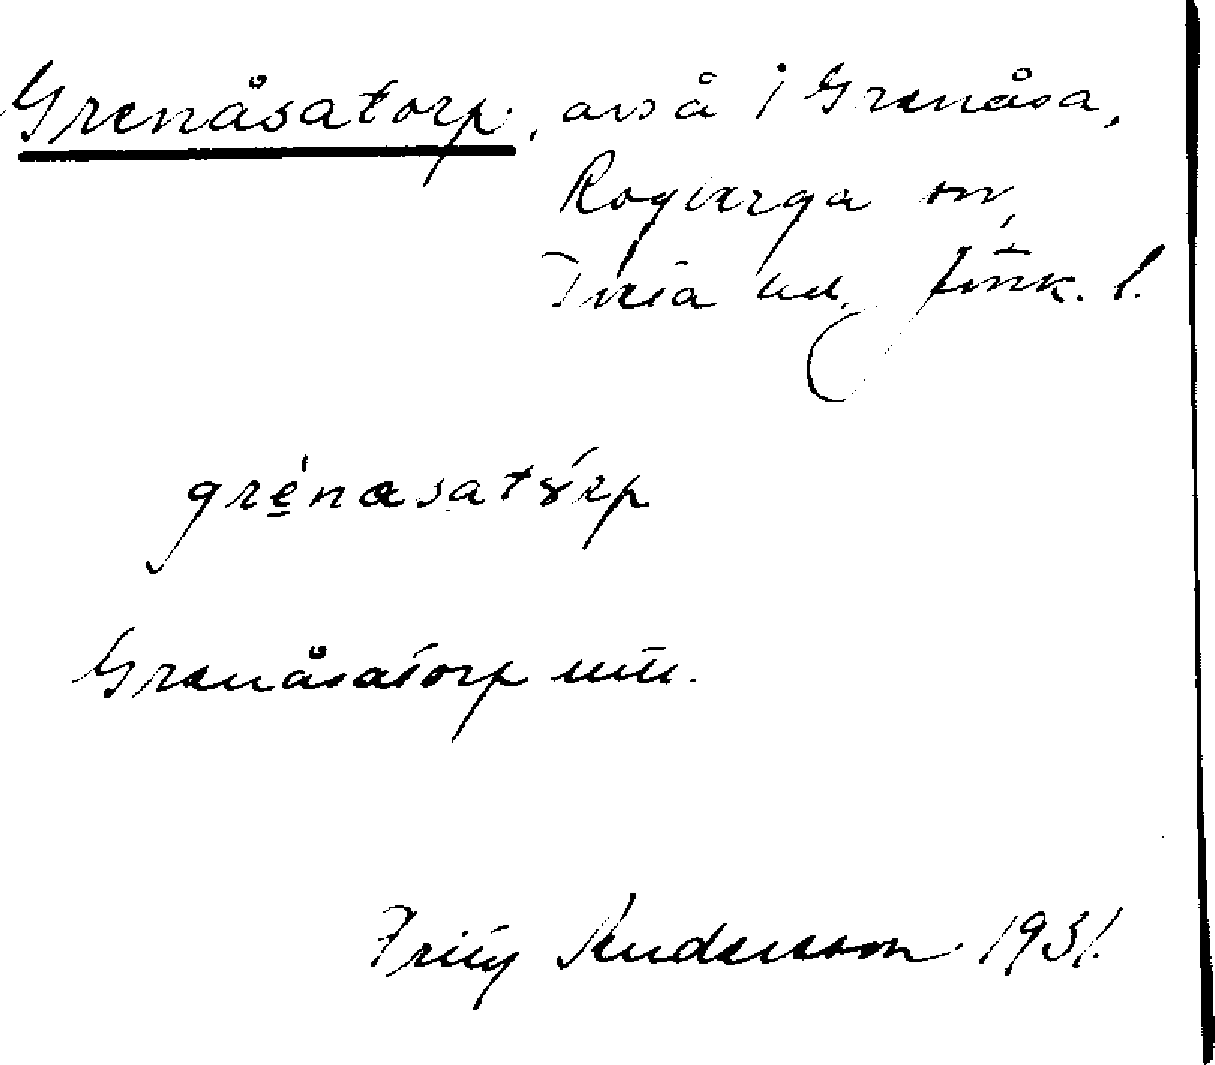 Grenåsatorp, avs å i Grenåsa,
Rogberga sn,
Tveta hd, Jönk. l.
grénasatórp
Grenåsatorp
Fritz Andersson 1931.